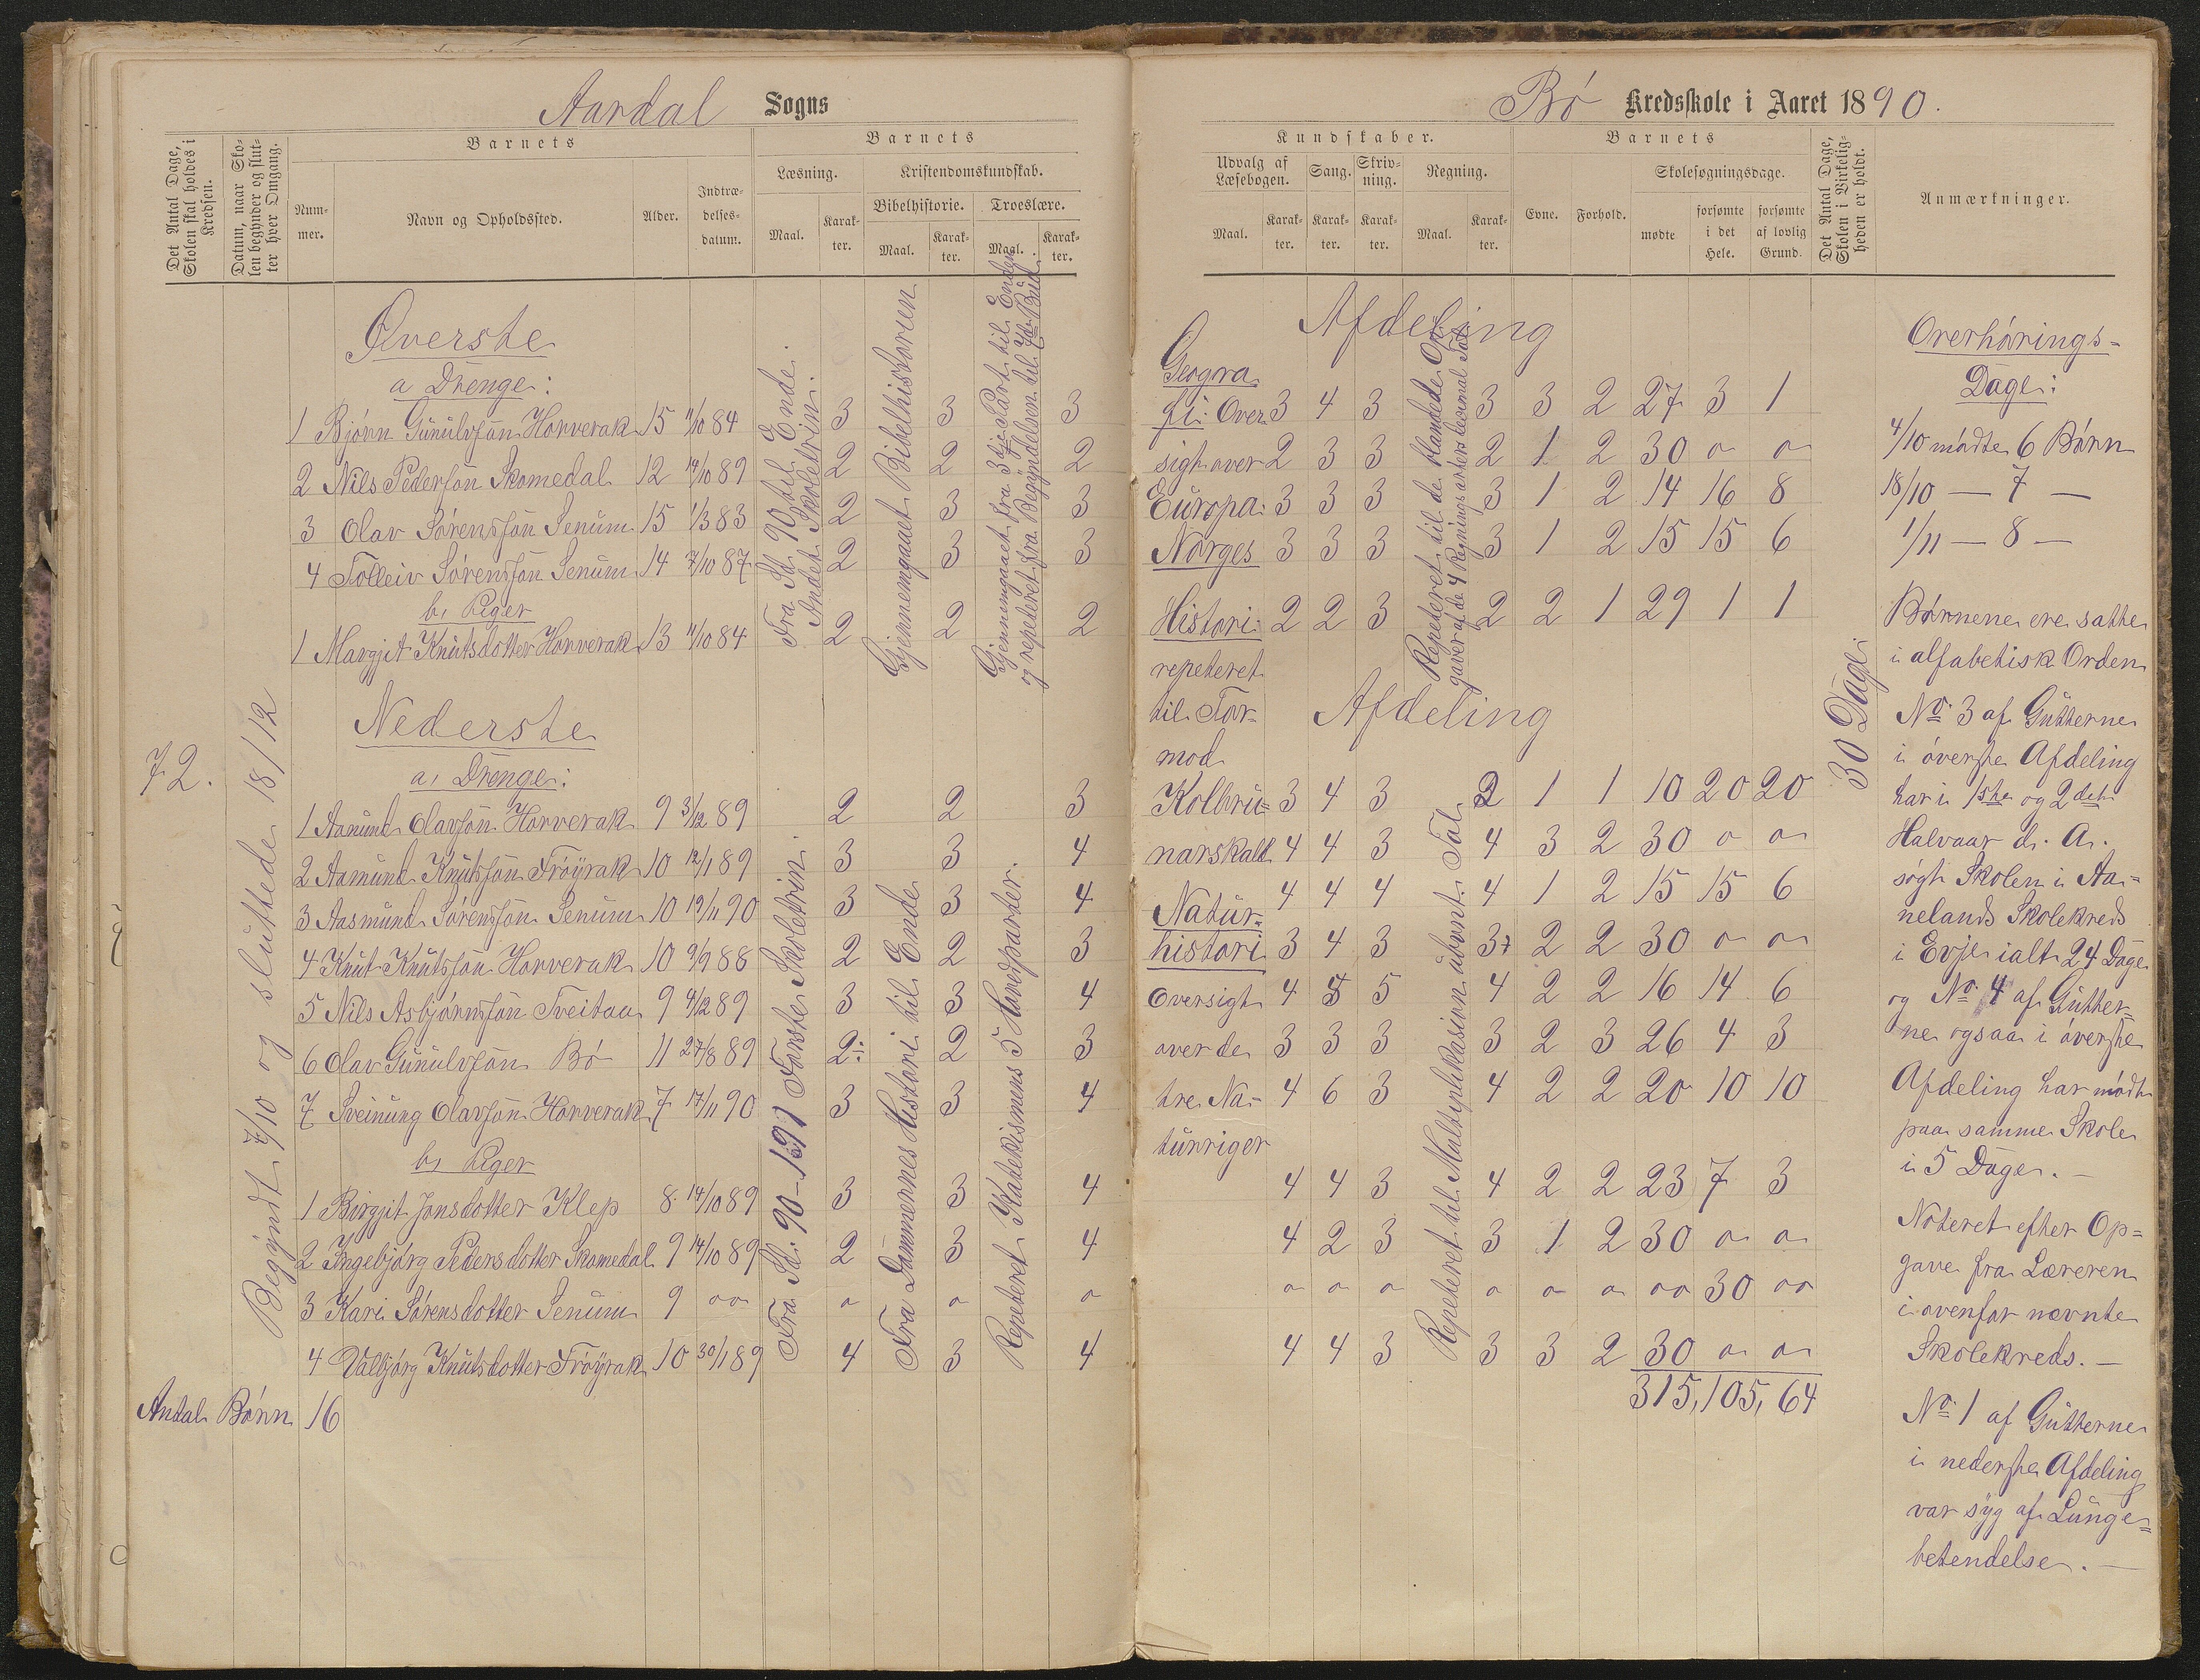 Aardal Sogns
Det Antal Dage, Skolen skal holdes i Kredsen.
Datum, naar Skolen begynder og slutter hver Omgang.
Barnets
Nummer.
Navn og Opholdssted.
Alder.
Indtrædelsesdatum.
Barnets
Læsning.
Maal.
Karakter.
Kristendomskundskab.
Bibelhistorie.
Maal.
Karakter.
Troeslære.
Maal.
Karakter.
Øverste
a Drenge:
1 Bjørn Gunulvsøn Horverak 15 11/10 84 3 3 3
2 Nils Pedersøn Skomedal 12 14/10 89 2 2 2
3 Olav Sørensøn Senum 15 1/3 83 2 3 3
4 Tolleiv Sørensøn Senum 14 7/10 87 2 3 3
b, Piger
1 Margjit Knutsdotter Horverak 13 11/10 84 2 2 2
Nederste
72.
a, Drenge:
1 Aanund Olavsøn Horverak 9 3/12 89 2 2 3
2 Aamund Knutsøn Frøyrak 10 12/11 89 3 3 4
3 Aasmund Sørensøn Senum 10 19/11 90 3 3 4
4 Knut Knutsøn Horverak 10 9/9 88 2 2 3
5 Nils Asbjørnsøn Tveitaa 9 4/12 89 3 3 4
6 Olav Gunulvsøn Bø 11 27/8 89 2÷ 2 3
7 Sveinung Olavsøn Horverak 7 17/11 90 3 3 4
b, Piger
1 Birgjit Jonsdotter Klep 8 14/10 89 3 3 4
2 Ingebjørg Pedersdotter Skomedal 9 14/10 89 2 3 4
3 Kari Sørensdotter Senum 9 oo o o o
4 Valbjørg Knutsdotter Frøyrak 10 30/11 89 4 3 4
Antal Børn 16
Begyndt 7/10 og sluttede 18/12
Fra St. 90 til Ende.
Andet Skoletrin.
Gjennemgaaet Bibelhistorien
Gjennemgaaet fra 3die Part til Enden
og repeteret fra Begyndelsen til 7de Bud.
Fra St. 90-1391 Første Skoletrin.
Fra Dommernes Histori til Ende
Repeteret Katekismens 5 Hovedparter.
Bø Kredsskole i Aaret 1890.
Kundskaber.
Udvalg af Læsebogen.
Maal.
Karakter.
Sang.
Karakter.
Skrivning.
Karakter.
Regning.
Maal.
Karakter.
Barnets
Evne.
Forhold.
Skolesøgningsdage.
mødte
forsømte i det Hele.
forsømte af lovlig Grund.
Det Antal Dage, Skolen i Virkeligheden er holdt.
Anmærkninger.
Afdeling
Geogra
fi: Over 3 4 3 3 3 2 27 3 1
sigt over 2 3 3 2 1 2 30 o o
Europa: 3 3 3 3 1 2 14 16 8
Norges 3 3 3 3 1 2 15 15 6
Histori: 2 2 3 2 2 1 29 1 1
repeteret
til Tor-
Afdeling
mod
Kolbru= 3 4 3 2 1 1 10 20 20
narskald 4 4 3 4 3 2 30 o o
Natur- 4 4 4 4 1 2 15 15 6
histori 3 4 3 3 2 2 30 o o
Oversigt 4 5 5 4 2 2 16 14 6
over de 3 3 3 3 2 3 26 4 3
tre Na- 4 6 3 4 2 2 20 10 10
turriger
4 4 3 4 2 2 23 7 3
4 2 3 3 1 2 30 o o
o o o o o o oo 30 oo
4 4 3 3 3 2 30 o o
315, 105, 64
Repeteret til de blandede Op-
gaver af de 4 Regningsarters decimal Tal.
Repeteret til Multiplikasion ubent. Tal.
30 Dage
Overhørings-
Dage:
4/10 mødte 6 Børn
18/10 — 7 —
1/11 — 8 —
Børnene ere satte
i alfabetisk Orden
No 3 af Gutterne
i øverste Afdeling
har i 1ste og 2det
Halvaar d. A.
søgt Skolen i Aa-
nelands Skolekreds
i Evje ialt 24 Dage
og No 4 af Gutter-
ne ogsaa i øverste
Afdeling har mødt
paa samme Skole
i 5 Dage. —
Noteret efter Op=
gave fra Læreren
i ovenfor nævnte
Skolekreds. —
No 1 af Gutterne
i nederste Afdeling
var syg af Lunge=
betendelse. —